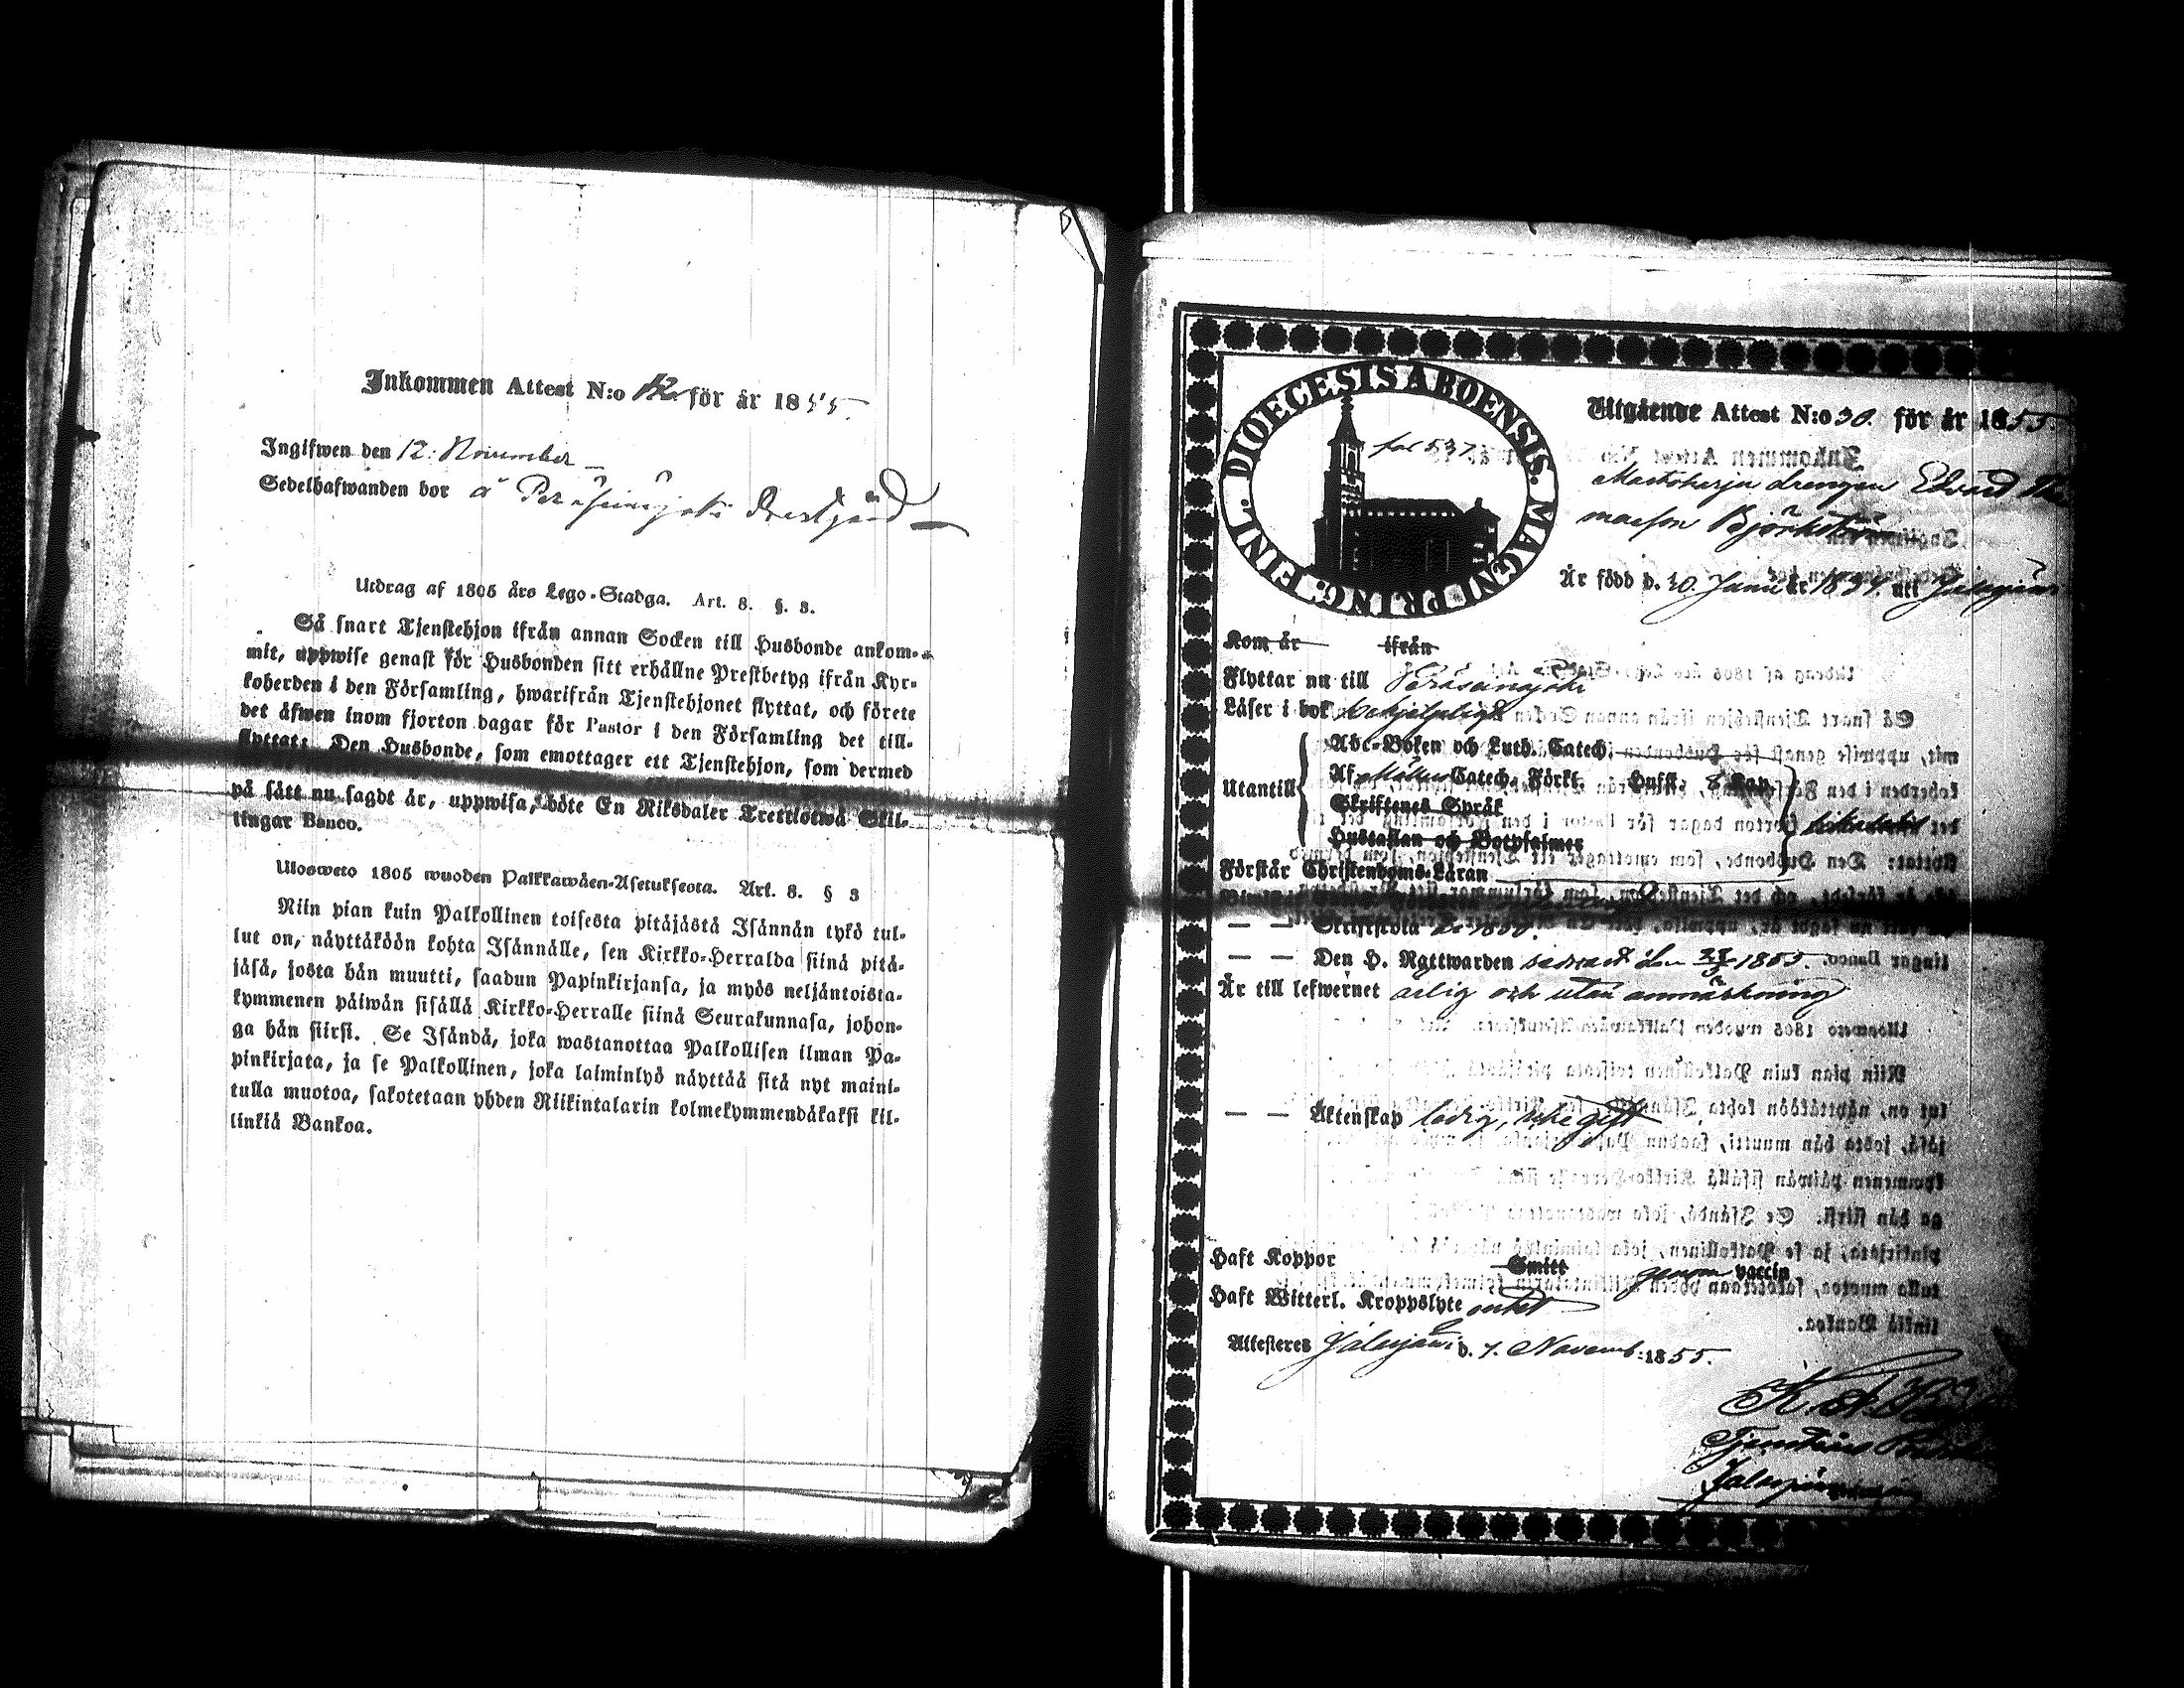 Inkommen Attest N:o 12. för år 1855.
Ingifwen den 12. November
Sedelhafwanden bor å Peräseinäjoki Prestgård
Utdrag af 1805 års Lego-Stadga. Art. 8. §. 3.
Så snart Tjenstehjon ifrån annan Socken till Husbonde ankom-
mit, uppwise genast för Husbonden sitt erhållne Prestbetyg ifrån Kyr-
koherden i den Församling, hwarifrån Tjenstehjonet flyttat, och förete
det äfwen inom fjorton dagar för Pastor i den Församling det till-
flyttat: Den Husbonde, som emottager ett Tjenstehjon, som dermed
på sätt nu sagdt är, uppwisa, böte En Riksdaler Trettiotwå Skil-
lingar Banco.
Ulosweto 1805 wuoden Palkkawäen-Asetuksesta. Art. 8. § 3
Niin pian kuin Palkollinen toisesta pitäjästä Isännän tykö tul-
lut on, näyttäköön kohta Isännälle, sen Kirkko-Herralda siinä pitä-
jäsä, josta hän muutti, saadun Papinkirjansa, ja myös neljäntoista-
kymmenen päiwän sisällä Kirkko-Herralle siinä Seurakunnasa, johon-
ga hän siirsi. Se Isändä, joka wastanottaa Palkollisen ilman Pa-
pinkirjata, ja se Palkollinen, joka laiminlyö näyttää sitä nyt maini-
tulla muotoa, sakotetaan yhden Riikintalarin kolmekymmendäkaksi kil-
linkiä Bankoa.
DIOECESIS ABOENSIS. MAGNI PRING. FINL.
fol 537
Utgående Attest N:o 30. för år 1855.
drengen Edvard
masson Björkström
Är född d. 10. Junii år 1834. att Jalasjärvi
Kom år ifrån
Flyttar nu till Peräseinäjoki
Läser i bok behjelpligt
Utantill
Abc-Boken och Luth. Catech.
Af Möllers Catech. Förkl. Husl. 8 Kap
Skriftenes Språk
Hustaflan och Botpsalmer
Förstår Christendoms-Läran
— — Skriftskola 1850.
— — Den H. Nattwarden senast den 23/5 1855.
Är till lefwernet ärlig och utan anmärkning
— — Äktenskap ledig, icke gift
Haft Koppor Smitt genom vaccin
Haft Witterl. Kroppslyte intet
Attesteres Jalasjärvi d. 7. Novemb. 1855.